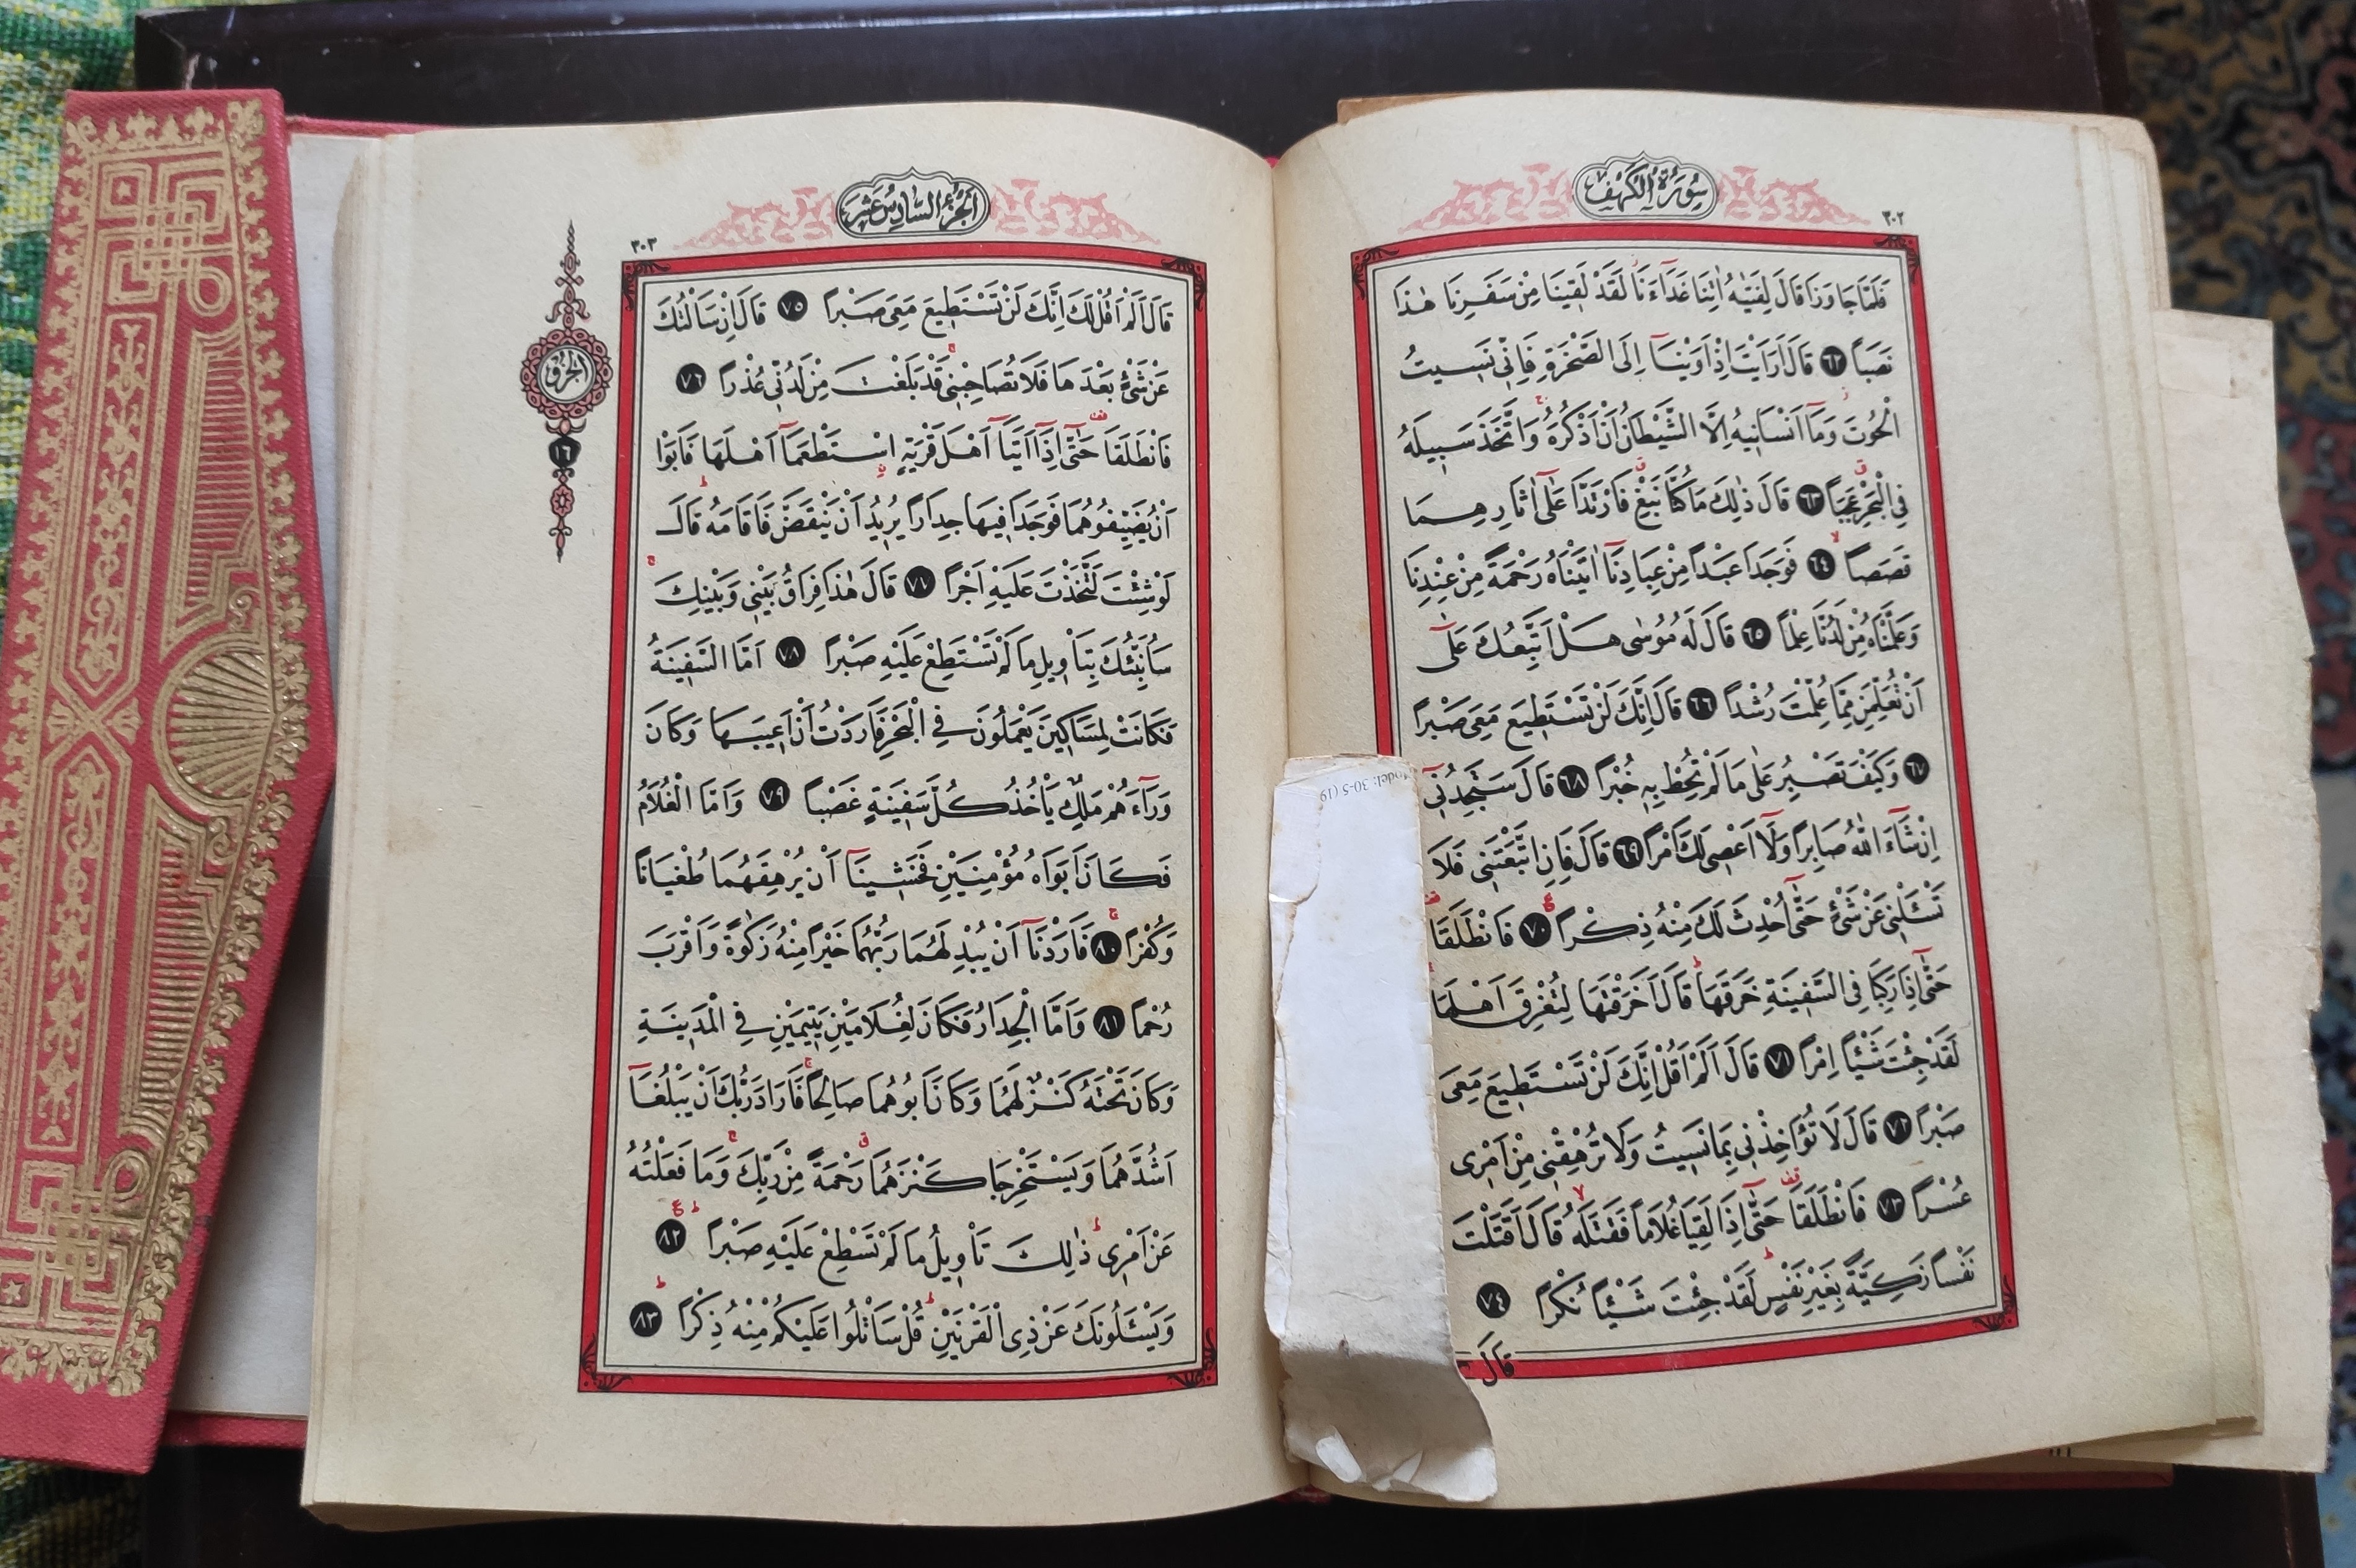 سُورَةُ الْكَهْفِ
٣٠٢
فَلَمَّا جَاوَزَا قَالَ لِفَتٰيهُ اٰتِنَا غَدَآءَنَا لَقَدْ لَقِينَا مِنْ سَفَرِنَا هٰذَا
نَصَبًا ٦٢ قَالَ اَرَاَيْتَ اِذْ اَوَيْنَآ اِلَى الصَّخْرَةِ فَاِنِّى نَسِيتُ
الْحُوتَ وَمَآ اَنْسَانِيهُ اِلَّا الشَّيْطَانُ اَنْ اَذْكُرَهُ وَاتَّخَذَ سَبِيلَهُ
فِى الْبَحْرِ عَجَبًا ٦٣ قَالَ ذٰلِكَ مَا كُنَّا نَبْغِ فَارْتَدَّا عَلٰٓى اٰثَارِهِمَا
قَصَصًا ٦٤ فَوَجَدَا عَبْدًا مِنْ عِبَادِنَآ اٰتَيْنَاهُ رَحْمَةً مِنْ عِنْدِنَا
وَعَلَّمْنَاهُ مِنْ لَدُنَّا عِلْمًا ٦٥ قَالَ لَهُ مُوسٰى هَلْ اَتَّبِعُكَ عَلٰٓى
اَنْ تُعَلِّمَنِ مِمَّا عُلِّمْتَ رُشْدًا ٦٦ قَالَ اِنَّكَ لَنْ تَسْتَطِيعَ مَعِىَ صَبْرًا
٦٧ وَكَيْفَ تَصْبِرُ عَلٰى مَا لَمْ تُحِطْ بِهِ خُبْرًا ٦٨ قَالَ سَتَجِدُنِىٓ
اِنْ شَآءَ اللّٰهُ صَابِرًا وَلَآ اَعْصِى لَكَ اَمْرًا ٦٩ قَالَ فَاِنِ اتَّبَعْتَنِى فَلَا
تَسْـَٔلْنِى عَنْ شَىْءٍ حَتّٰٓى اُحْدِثَ لَكَ مِنْهُ ذِكْرًا ٧٠ فَانْطَلَقَا
حَتّٰٓى اِذَا رَكِبَا فِى السَّفِينَةِ خَرَقَهَا قَالَ اَخَرَقْتَهَا لِتُغْرِقَ اَهْلَهَا
لَقَدْ جِئْتَ شَيْئًا اِمْرًا ٧١ قَالَ اَلَمْ اَقُلْ اِنَّكَ لَنْ تَسْتَطِيعَ مَعِىَ
صَبْرًا ٧٢ قَالَ لَا تُؤَاخِذْنِى بِمَا نَسِيتُ وَلَا تُرْهِقْنِى مِنْ اَمْرِى
عُسْرًا ٧٣ فَانْطَلَقَا حَتّٰٓى اِذَا لَقِيَا غُلَامًا فَقَتَلَهُ قَالَ اَقَتَلْتَ
نَفْسًا زَكِيَّةً بِغَيْرِ نَفْسٍ لَقَدْ جِئْتَ شَيْئًا نُكْرًا ٧٤
قَالَ
Model: 30-5 (19
اَلْجُزْءُ السَّادِسُ عَشَرَ
٣٠٣
الجزؤ
١٦
قَالَ اَلَمْ اَقُلْ لَكَ اِنَّكَ لَنْ تَسْتَطِيعَ مَعِىَ صَبْرًا ٧٥ قَالَ اِنْ سَاَلْتُكَ
عَنْ شَىْءٍ بَعْدَهَا فَلَا تُصَاحِبْنِى قَدْ بَلَغْتَ مِنْ لَدُنِّى عُذْرًا ٧٦
فَانْطَلَقَا حَتّٰٓى اِذَآ اَتَيَآ اَهْلَ قَرْيَةٍ اسْتَطْعَمَآ اَهْلَهَا فَاَبَوْا
اَنْ يُضَيِّفُوهُمَا فَوَجَدَا فِيهَا جِدَارًا يُرِيدُ اَنْ يَنْقَضَّ فَاَقَامَهُ قَالَ
لَوْ شِئْتَ لَتَّخَذْتَ عَلَيْهِ اَجْرًا ٧٧ قَالَ هٰذَا فِرَاقُ بَيْنِى وَبَيْنِكَ
سَاُنَبِّئُكَ بِتَاْوِيلِ مَا لَمْ تَسْتَطِعْ عَلَيْهِ صَبْرًا ٧٨ اَمَّا السَّفِينَةُ
فَكَانَتْ لِمَسَاكِينَ يَعْمَلُونَ فِى الْبَحْرِ فَاَرَدْتُ اَنْ اَعِيبَهَا وَكَانَ
وَرَآءَهُمْ مَلِكٌ يَاْخُذُ كُلَّ سَفِينَةٍ غَصْبًا ٧٩ وَاَمَّا الْغُلَامُ
فَكَانَ اَبَوَاهُ مُؤْمِنَيْنِ فَخَشِينَآ اَنْ يُرْهِقَهُمَا طُغْيَانًا
وَكُفْرًا ٨٠ فَاَرَدْنَآ اَنْ يُبْدِلَهُمَا رَبُّهُمَا خَيْرًا مِنْهُ زَكٰوةً وَاَقْرَبَ
رُحْمًا ٨١ وَاَمَّا الْجِدَارُ فَكَانَ لِغُلَامَيْنِ يَتِيمَيْنِ فِى الْمَدِينَةِ
وَكَانَ تَحْتَهُ كَنْزٌ لَهُمَا وَكَانَ اَبُوهُمَا صَالِحًا فَاَرَادَ رَبُّكَ اَنْ يَبْلُغَآ
اَشُدَّهُمَا وَيَسْتَخْرِجَا كَنْزَهُمَا رَحْمَةً مِنْ رَبِّكَ وَمَا فَعَلْتُهُ
عَنْ اَمْرِى ذٰلِكَ تَاْوِيلُ مَا لَمْ تَسْطِعْ عَلَيْهِ صَبْرًا ٨٢
وَيَسْـَٔلُونَكَ عَنْ ذِى الْقَرْنَيْنِ قُلْ سَاَتْلُوا عَلَيْكُمْ مِنْهُ ذِكْرًا ٨٣